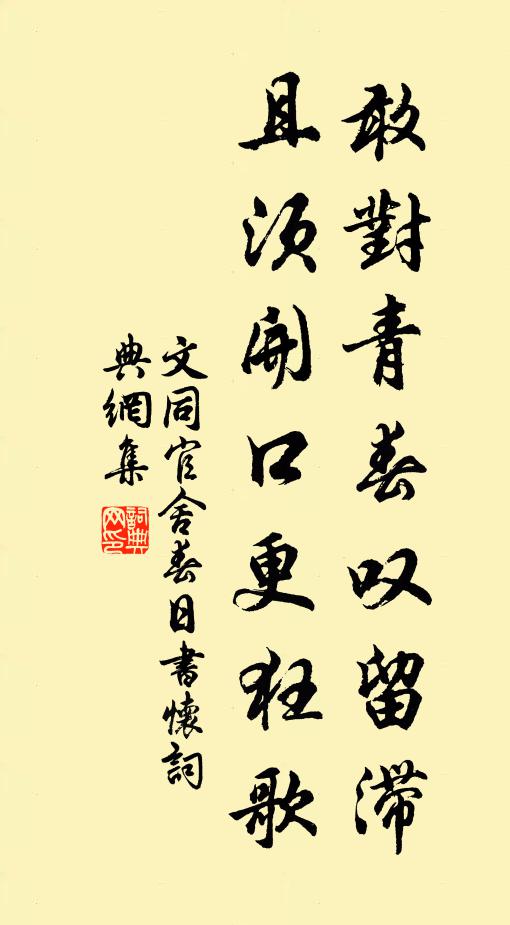 敢對青春叹留滞
且須開口更狂歌
文同官舍春日書懷詞
典網集
詞典網印